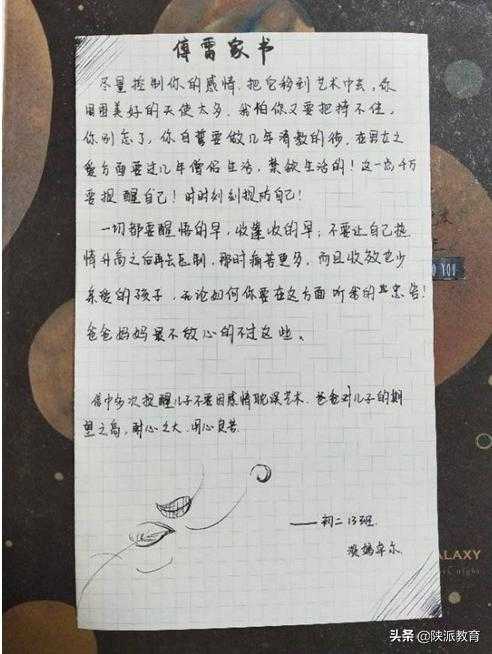 傅雷家书
尽量控制你的感情,把它移到艺术中去,你
周围美好的天使太多,我怕你又要把持不住,
你别忘了,你自誓要做几年清教的徒,在男女之
爱方面要过几年僧侣生活,禁欲生活的!这一点千万
要提醒自己!时时刻刻提防自己!
一切都要醒悟的早,收篷收的早;不要让自己热
情升高之后再去压制,那时痛苦更多,而且收效也少
亲爱的孩子,无论如何你要在这方面听我的忠告!
爸爸妈妈最不放心的不过这些。
信中多次提醒儿子不要因感情耽误艺术.爸爸对儿子的期
望之高,耐心之大,用心良苦.
——初二13班.
卓尔
YOU
GALAXY
头条@陕派教育